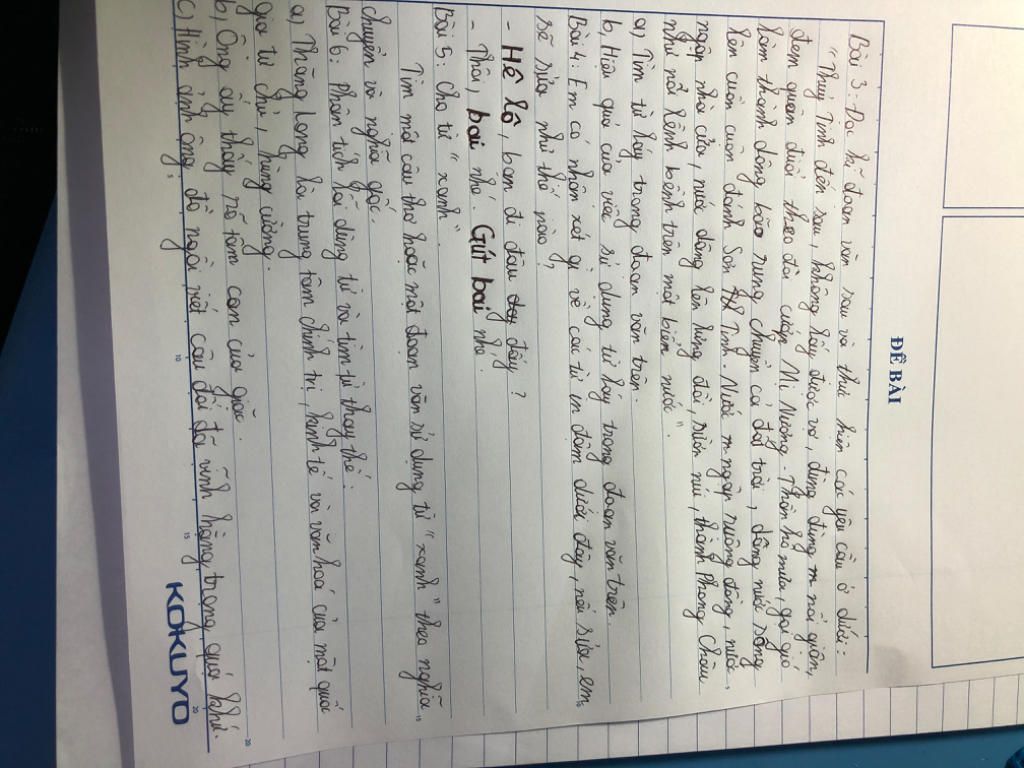 ĐỀ BÀI
Bài 3. Đọc kĩ đoạn văn sau và thực hiện các yêu cầu ở dưới:
"Thuỷ Tinh đến sau, không lấy được vợ, đùng đùng nổi giận,
đem quân đuổi theo đòi cướp Mị Nương. Thần hô mưa, gọi gió
làm thành dông bão rung chuyển cả đất trời, dâng nước sông
lên cuồn cuộn đánh Sơn Tinh. Nước ngập ruộng đồng, nước
ngập nhà cửa, nước dâng lên lưng đồi, sườn núi, thành Phong Châu
như nổi lềnh bềnh trên một biển nước".
a, Tìm từ láy trong đoạn văn trên.
b, Hiệu quả của việc sử dụng từ láy trong đoạn văn trên.
Bài 4: Em có nhận xét gì về các từ in đậm dưới đây, nếu sửa, em
sẽ sửa như thế nào?
- Hê lô, bạn đi đâu đấy?
- Thôi, bai nhé. Gút bai nhé.
Bài 5: Cho từ "xanh".
Tìm một câu thơ hoặc một đoạn văn sử dụng từ "xanh" theo nghĩa
chuyển và nghĩa gốc.
Bài 6: Phân tích lỗi dùng từ và tìm từ thay thế:
a) Thăng Long là trung tâm chính trị, kinh tế và văn hoá của một quốc
gia tự chủ, hùng cường.
b, Ông ấy thấy nó tợm con của giặc.
c) Hình ảnh ông đồ ngồi viết câu đối đã vĩnh hằng trong quá khứ.
KOKUYO
5
10
15
20
20